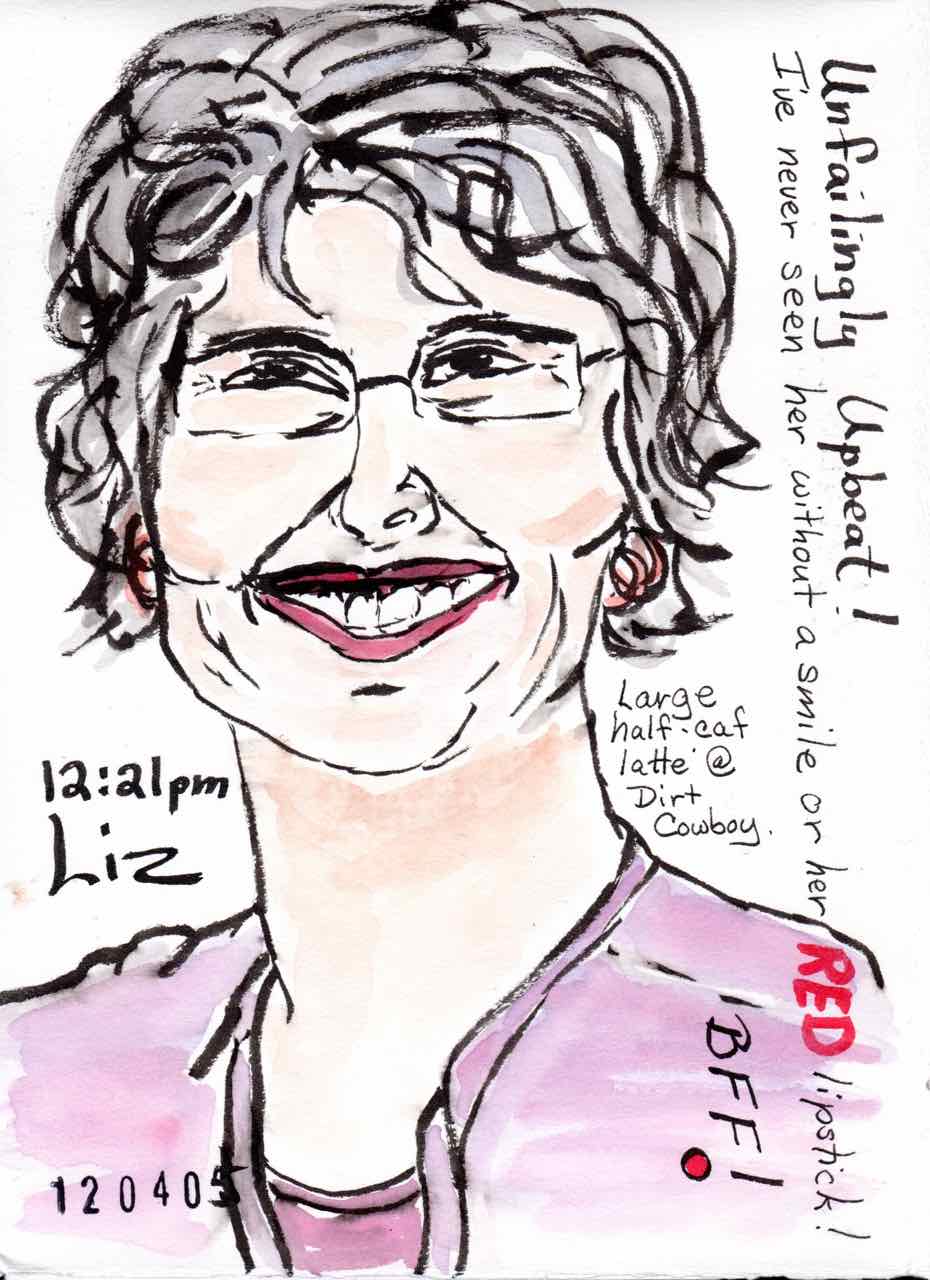 Unfailingly Upbeat!
I've never seen her without a smile or her RED lipstick!
BFF!
Large
half-caf
latte @
Dirt
Cowboy.
12:21pm
Liz
120405